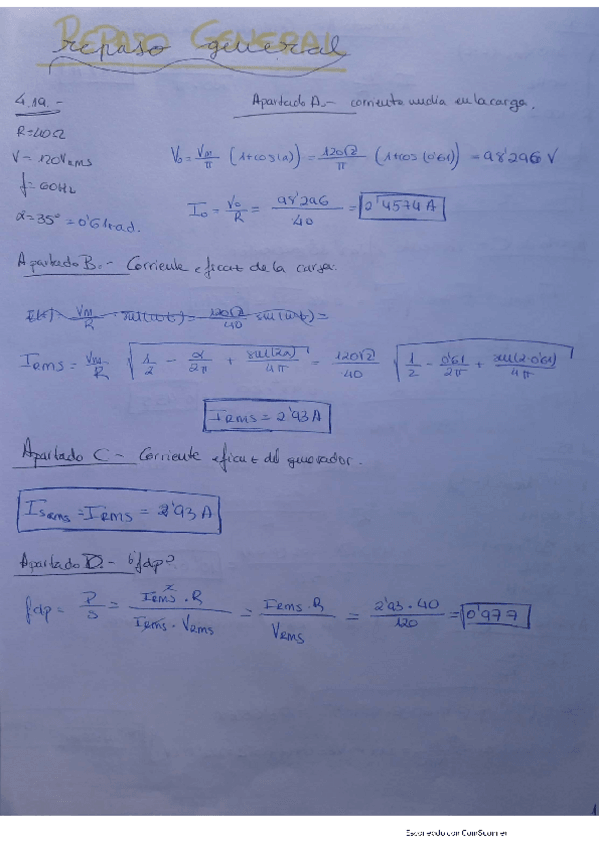 REPASO GENERAL
repaso general
4.19.-
Apartado A.- corriente media en la carga.
R=40Ω
V = 120Vrms
f = 60Hz
α = 35° = 0'61rad.
V₀ = Vm/π (1+cos(α)) = 120√2/π (1+cos(0'61)) = 98'296 V
I₀ = V₀/R = 98'296/40 = 0'4574 A
Apartado B.- Corriente eficaz de la carga.
I(t) = Vm/R · sen(wt) = 120√2/40 sen(wt) =
Irms = Vm/R √(1/2 - α/2π + sen(2α)/4π) = 120√2/40 √(1/2 - 0'61/2π + sen(2·0'61)/4π)
Irms = 2'93 A
Apartado C.- Corriente eficaz del generador.
Isrms = Irms = 2'93 A
Apartado D.- ¿fdp?
fdp = P/S = Irms²·R/Irms·Vrms = Irms·R/Vrms = 2'93·40/120 = 0'977
1
Escaneado con CamScanner